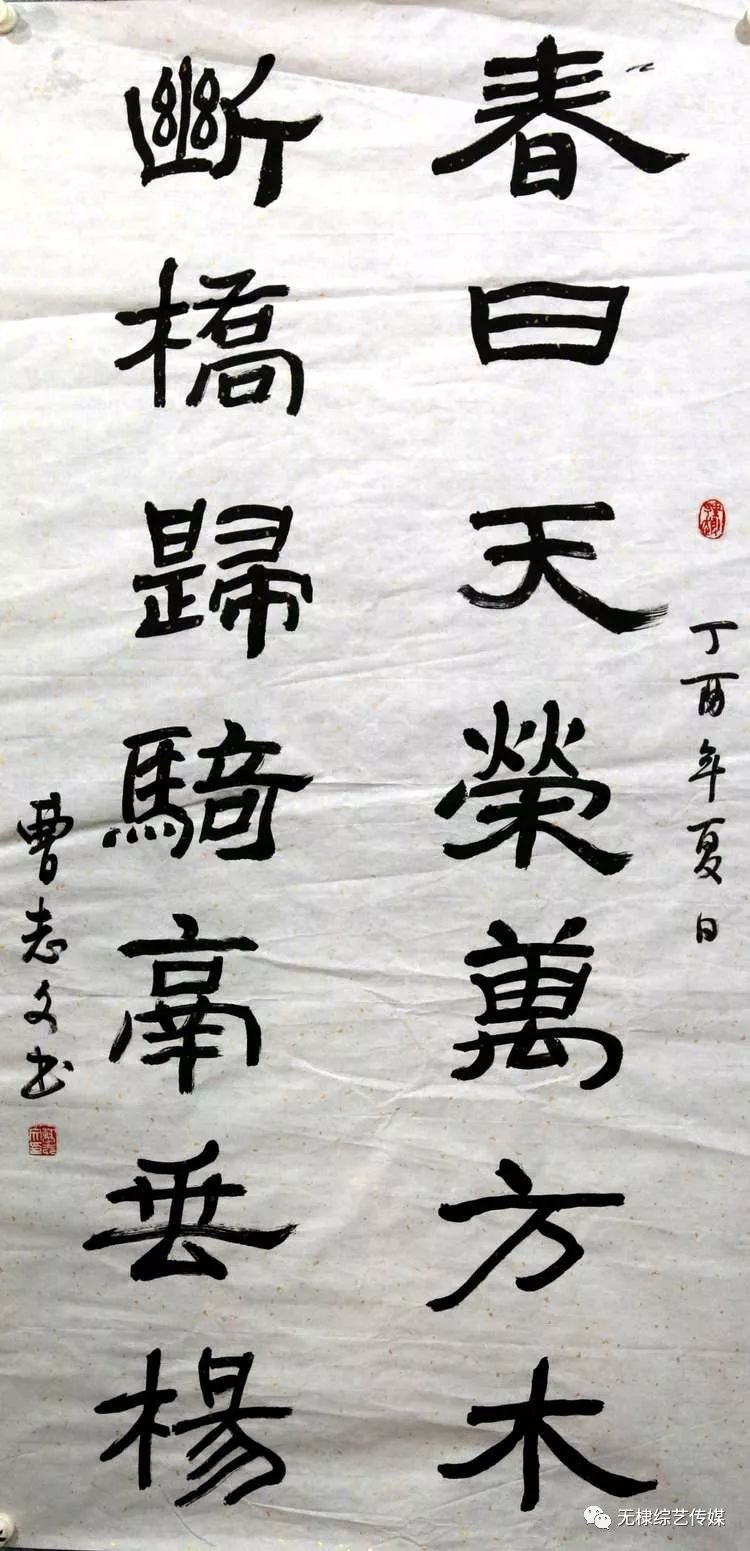 丁酉年夏日
春日天榮萬方木
斷橋歸騎垂楊
曹志文书
无棣综艺传媒